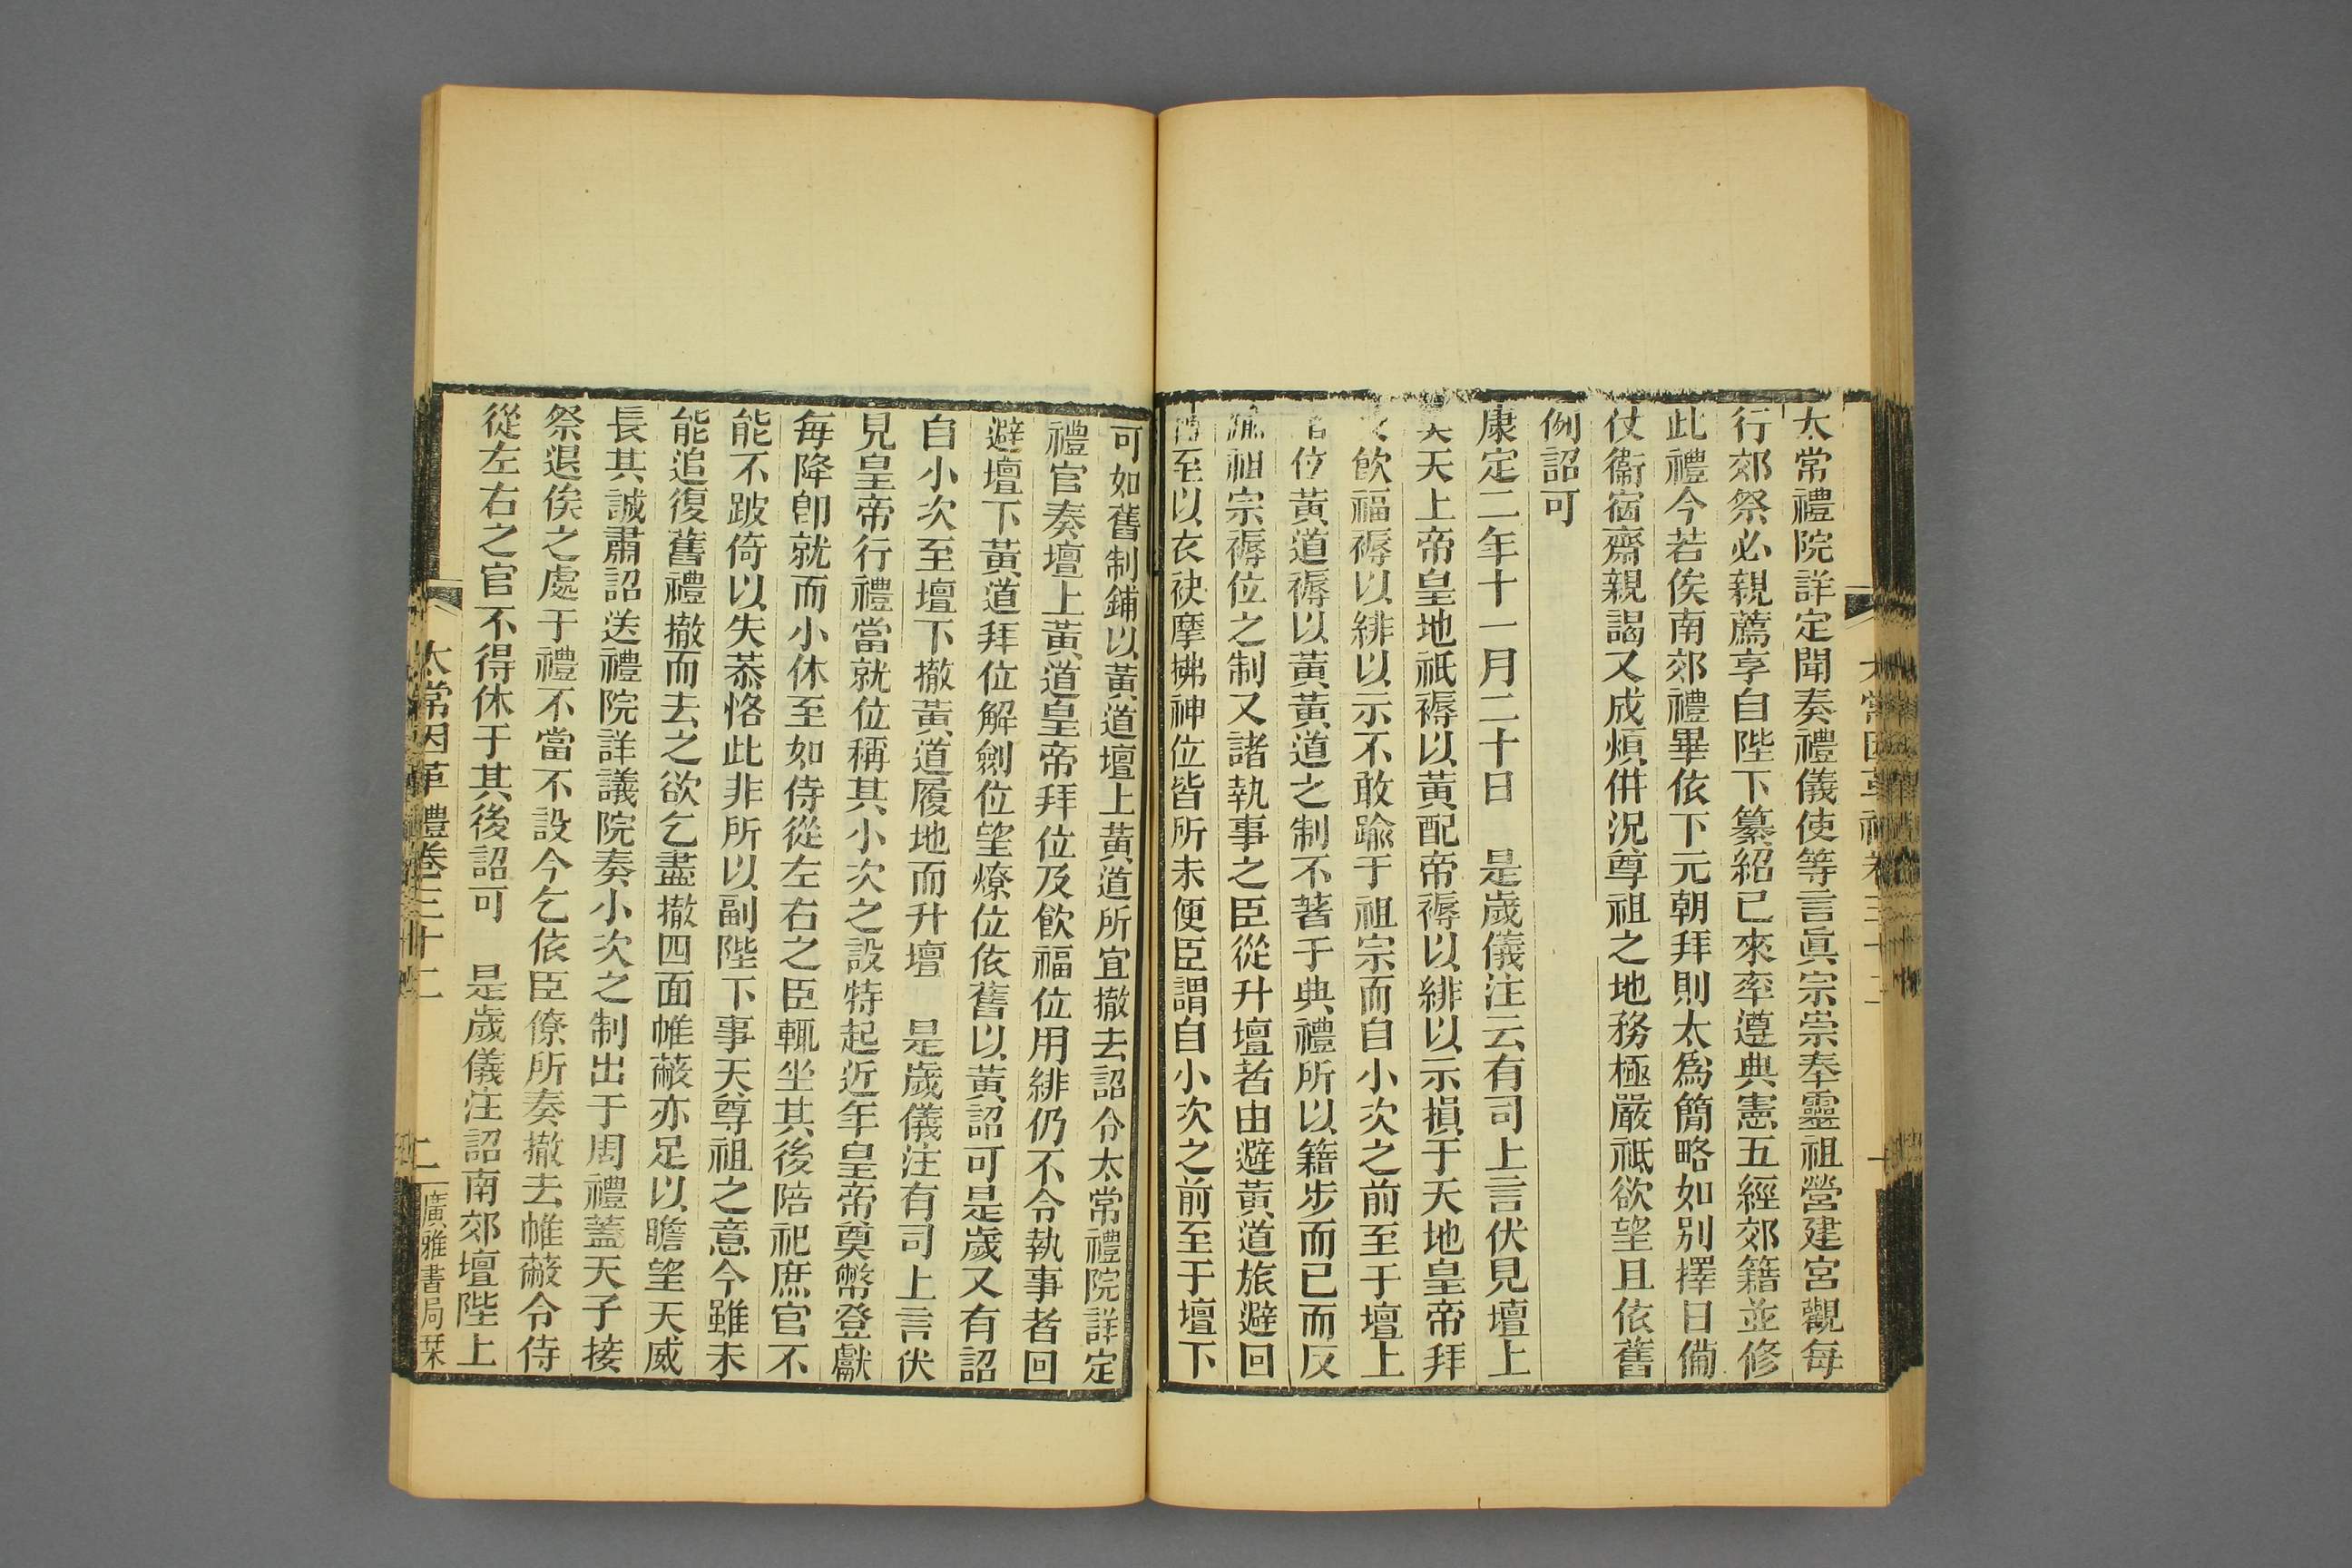 太常禮院詳定聞奏禮儀使等言眞宗崇奉靈祖營建宮觀每
行郊祭必親薦享自陛下纂紹已來率遵典憲五經郊籍並修
此禮今若俟南郊禮畢依下元朝拜則太爲簡略如别擇日備
仗衞宿齋親謁又成煩併況尊祖之地務極嚴祗欲望且依舊
例詔可
康定二年十一月二十日 是歲儀注云有司上言伏見壇上
天上帝皇地祇褥以黃配帝褥以緋以示損于天地皇帝拜
飲福褥以緋以示不敢踰于祖宗而自小次之前至于壇上
位黃道褥以黃黃道之制不著于典禮所以籍步而已而反
踰祖宗褥位之制又諸執事之臣從升壇者由避黃道旅避回
至以衣袂摩拂神位皆所未便臣謂自小次之前至于壇下
可如舊制鋪以黃道壇上黃道所宜撤去詔令太常禮院詳定
禮官奏壇上黃道皇帝拜位及飲福位用緋仍不令執事者回
避壇下黃道拜位解劍位望燎位依舊以黃詔可是歲又有詔
自小次至壇下撤黃道履地而升壇 是歲儀注有司上言伏
見皇帝行禮當就位稱其小次之設特起近年皇帝奠幣登獻
每降卽就而小休至如侍從左右之臣輒坐其後陪祀庶官不
能不跛倚以失恭恪此非所以副陛下事天尊祖之意今雖未
能追復舊禮撤而去之欲乞盡撤四面帷蔽亦足以瞻望天威
長其誠肅詔送禮院詳議院奏小次之制出于周禮蓋天子接
祭退俟之處于禮不當不設今乞依臣僚所奏撤去帷蔽令侍
從左右之官不得休于其後詔可 是歲儀注詔南郊壇陛上
太常因革禮卷三十二 二 廣雅書局栞